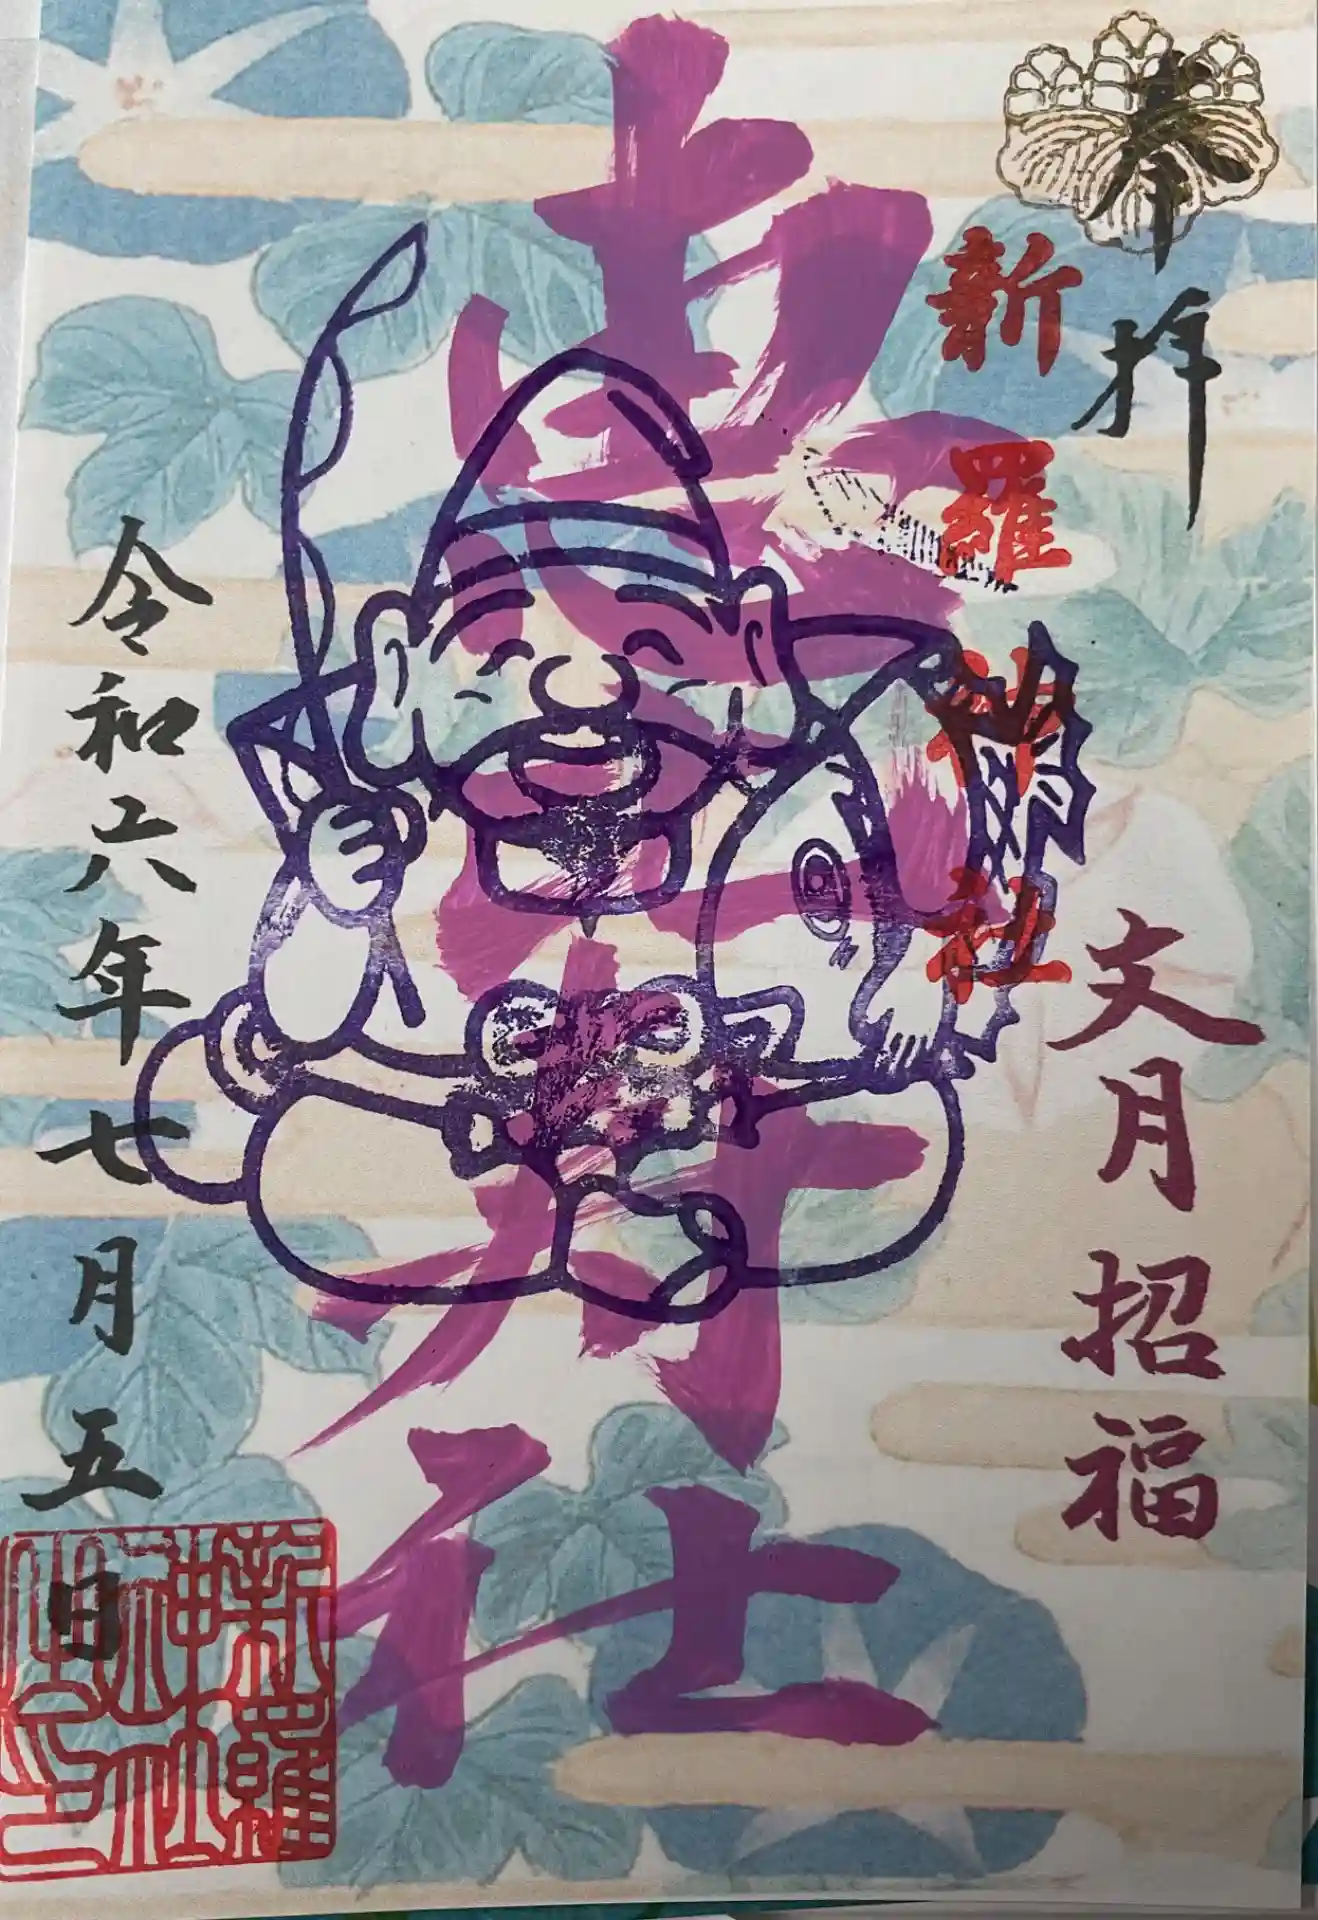 奉拝
新羅神社
文月 招福
社
令和六年七月五日
新羅
神社
之印